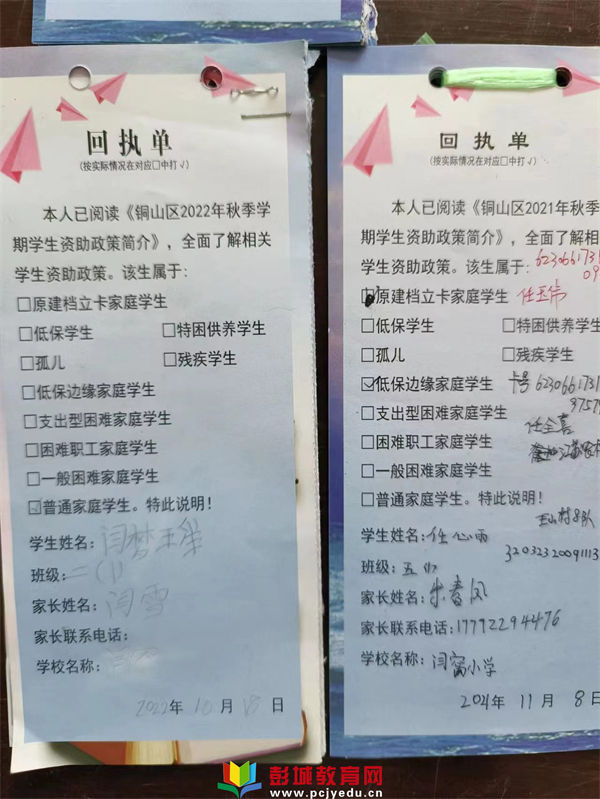 回执单
(按实际情况在对应□中打√)
本人已阅读《铜山区2022年秋季学
期学生资助政策简介》，全面了解相关
学生资助政策。该生属于：
□原建档立卡家庭学生
□低保学生 □特困供养学生
□孤儿 □残疾学生
□低保边缘家庭学生
□支出型困难家庭学生
□困难职工家庭学生
□一般困难家庭学生
☑普通家庭学生。特此说明！
学生姓名：闫梦
班级：二（1）
家长姓名：闫雪
家长联系电话：
学校名称：
2022年 10月 18日
回执单
(按实际情况在对应□中打√)
本人已阅读《铜山区2021年秋季
期学生资助政策简介》，全面了解相
学生资助政策。该生属于：6230661731
09
□原建档立卡家庭学生 任玉伟
□低保学生 □特困供养学生
□孤儿 □残疾学生
☑低保边缘家庭学生 卡号6230661731
9757
□支出型困难家庭学生
任全喜
□困难职工家庭学生
□一般困难家庭学生
□普通家庭学生。特此说明！
王山村8队
学生姓名：任心雨
32032320091113
班级：五
家长姓名：朱春凤
家长联系电话：17792294476
学校名称：闫窝小学
2021年 11月 8日
彭城教育网
www.pcjyedu.cn